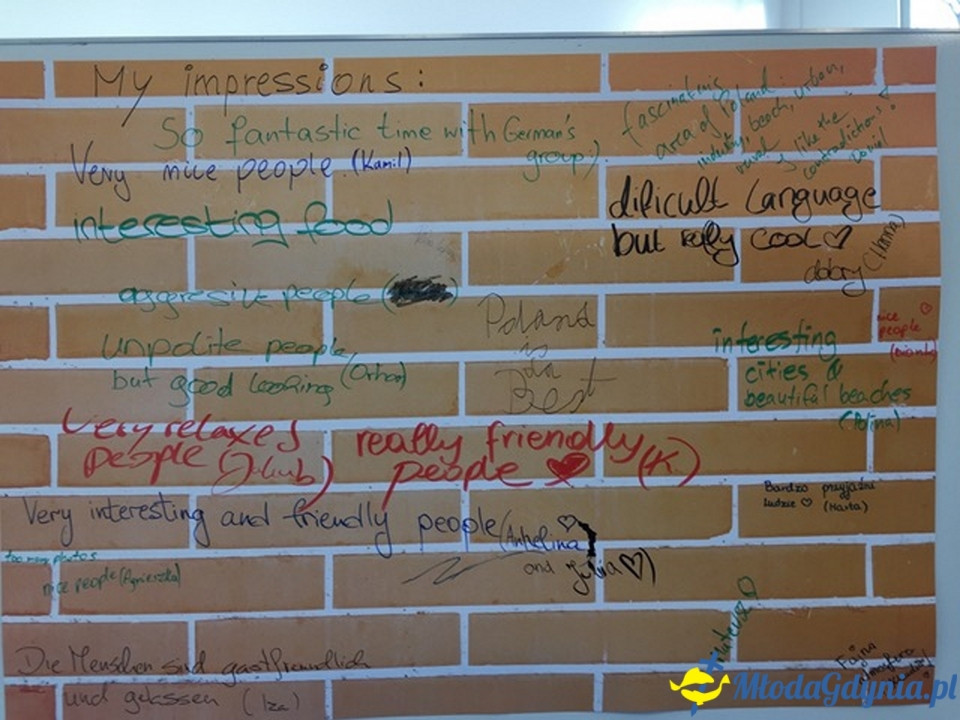 My impressions:
So fantastic time with German's
group:)
Very nice people (Kamil)
interesting food
aggresive people
unpolite people,
but good looking (Orhan)
Very relaxed
people (Jakub)
really friendly
people (K)
Very interesting and friendly people (Anhelina
and Julia)
too many photos
nice people (Agnieszka)
Die Menschen sind gastfreundlich
und gelassen (Iza)
Poland
is
da
Best
fascinating
area of Poland
industry, beach, urban,
rural I like the
contradictions!
Daniel
dificult language
but really cool
dobry (Hanna)
nice
people
interesting
cities &
beautiful beaches
(Polina)
Bardzo przyjaźni
ludzie (Marta)
Fajna
MłodaGdynia.pl